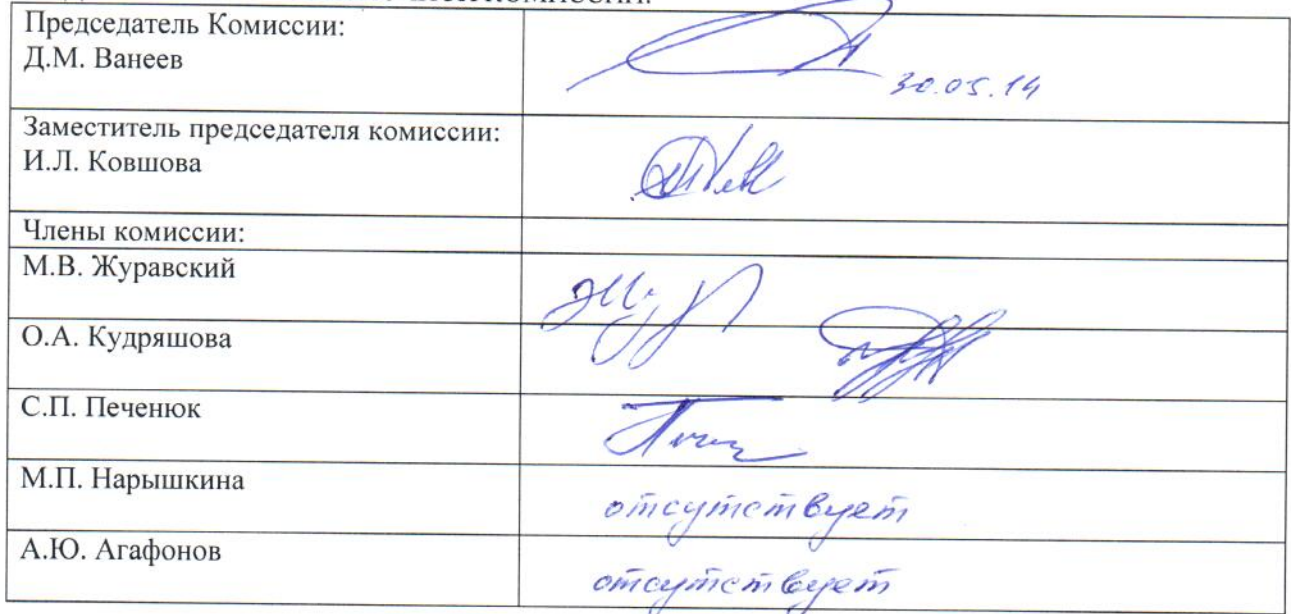 Председатель Комиссии:
Д.М. Ванеев
30.05.14
Заместитель председателя комиссии:
И.Л. Ковшова
Члены комиссии:
М.В. Журавский
О.А. Кудряшова
С.П. Печенюк
М.П. Нарышкина
отсутствует
А.Ю. Агафонов
отсутствует